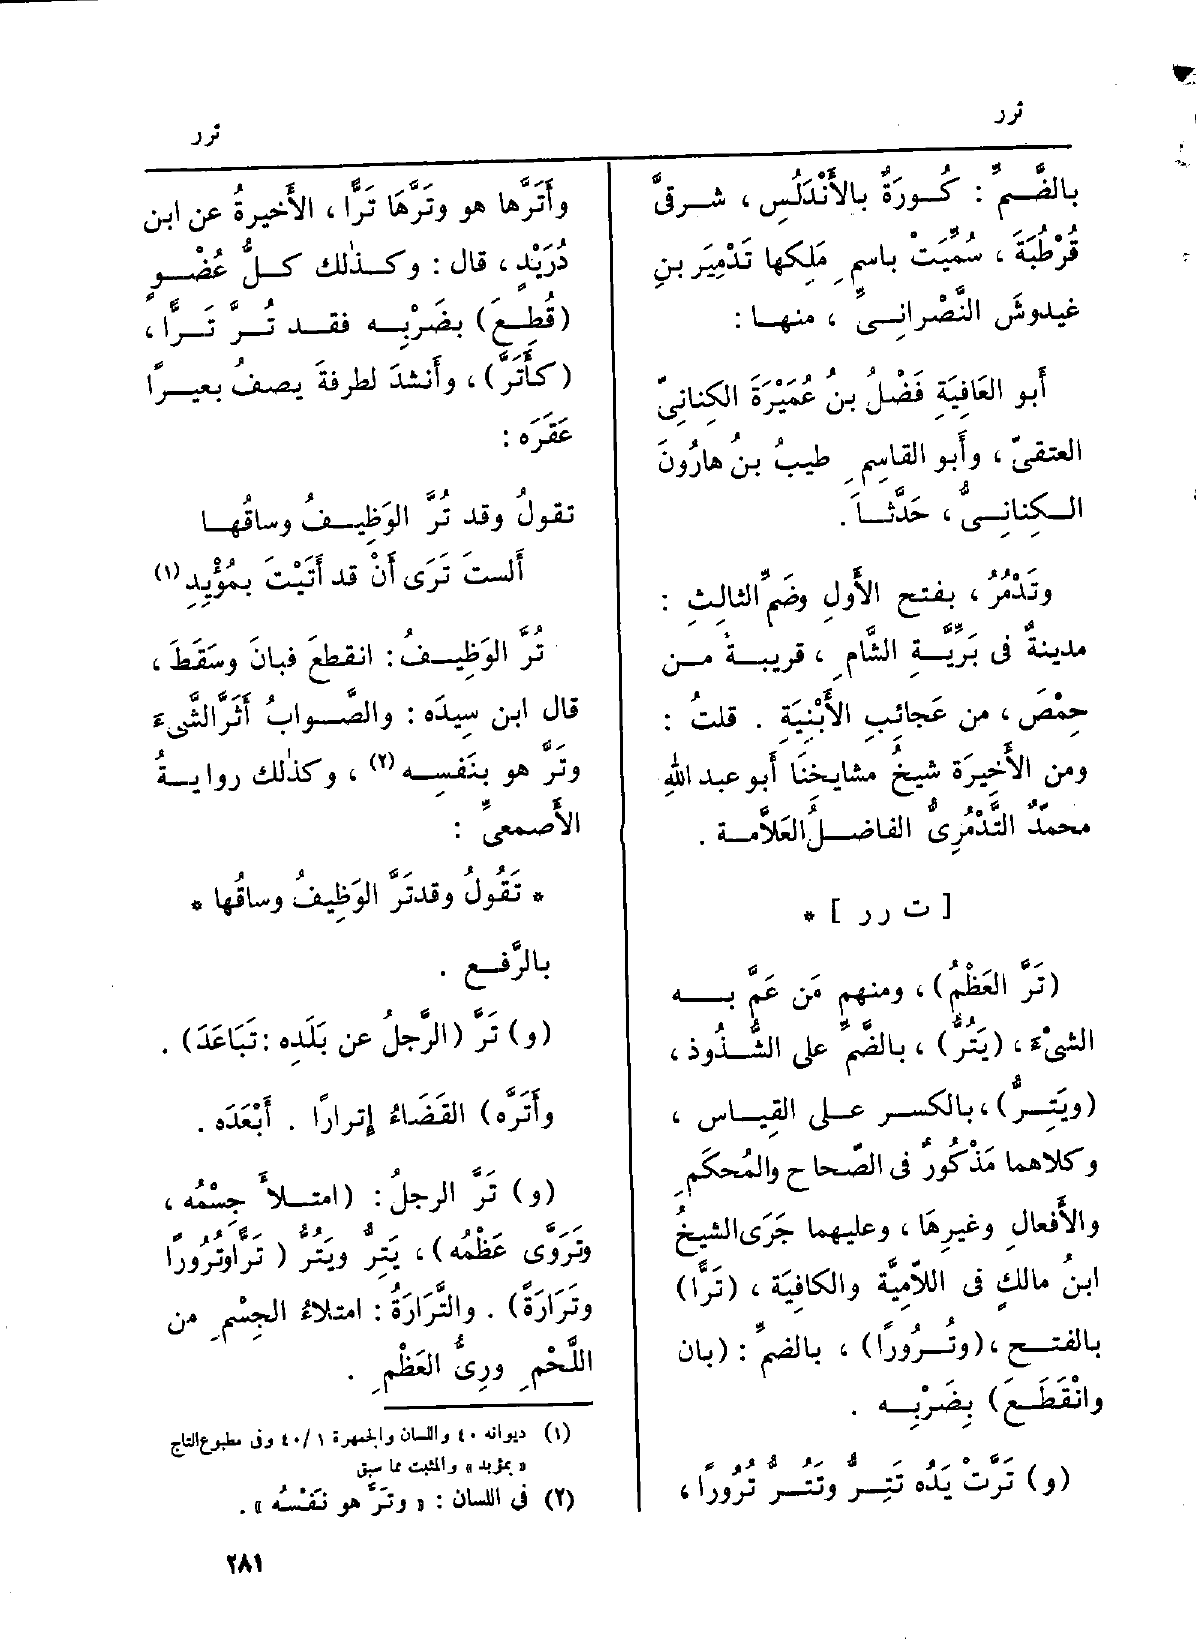 ترر
ترر
بالضَّمِّ : كُــورَةٌ بالأَنْدَلُسِ ، شـرقىَّ
قُرْطُبَةَ ، سُمِّيَتْ باسمِ مَلِكها تَدْمِيَر بنِ
غيدوشَ النَّصْرانِـىِّ ، منهـا :
أَبو العَافِيَةِ فَضْلُ بنُ عُمَيْرَةَ الكِنانِىّ
العتقىّ ، وأَبو القاسِمِ طيبُ بنُ هارُونَ
الـكِنانِـىُّ ، حَدَّثـاَ .
وتَدْمُرُ ، بفتح الأَولِ وضَمِّ الثالِثِ :
مدينةٌ فى بَرِّيَّــةِ الشَّامِ ، قريبـةٌ مـن
حِمْصَ ، من عَجائِبِ الأَبْنِيَةِ . قلتُ :
ومن الأَخِيرَة شيخُ مشايخنَا أَبو عبد اللهِ
محمّدٌ التَّدْمُرِىُّ الفاضـلُ العَلاَّمـة .
[ ت ر ر ] *
(تَرَّ العَظْمُ) ، ومنهم مَن عَمَّ بـــه
الشىْءَ ، (يَتُرُّ) ، بالضَّمِّ على الشُّـذُوذ ،
(ويَتِــرُّ) ، بالكسر علـى القِيـاس ،
وكلاهما مَذْكُورٌ فى الصّحاح والمُحكَمِ
والأَفعالِ وغيرِهَا ، وعليهما جَرَى الشيخُ
ابنُ مالكٍ فى اللاّمِيَّة والكافِيَة ، (تَرًّا)
بالفتـح ، (وتُـرُورًا) ، بالضمِّ : (بان
وانْقَطَـعَ) بِضَرْبِــه .
(و) تَرَّتْ يَدُه تَتِـرُّ وتَتُـرُّ تُرُورًا ،
وأَتَرَّها هو وتَرَّهَا تَرًّا ، الأَخيرةُ عن ابن
دُرَيْدٍ ، قال : وكـذٰلك كـلُّ عُضْـوٍ
(قُطِـعَ) بضَرْبِـه فقـد تُـرَّ تَـرًّا ،
(كأَتَرَّ) ، وأَنشدَ لطرفةَ يصفُ بعيـرًا
عَقَرَه :
تقولُ وقد تُرَّ الوَظِيـفُ وساقُهـا
أَلستَ تَرَى أَنْ قد أَتَيْتَ بمُؤْيِدِ (١)
تُرَّ الوَظِيـفُ : انقطعَ فبانَ وسَقَطَ ،
قال ابن سِيدَه : والصَّـوابُ أَثَرَّ الشَّىءَ
وتَرَّ هو بنَفسِـه (٢) ، وكذٰلك روايـةُ
الأَصمعىِّ :
* تَقُولُ وقدتَرَّ الوَظِيفُ وساقُها *
بالرَّفـع .
(و) تَرَّ (الرَّجلُ عن بَلَدِه : تَبَاعَدَ) .
وأَتَرَّه) القَضَاءُ إترارًا . أَبْعَدَه .
(و) تَرَّ الرجلُ : (امتـلأَ جِسْمُه ،
وتَروَّى عَظْمُه) ، يَتِرُّ ويَتُرُّ ( تَرًّاوتُرُورًا
وتَرَارَةً) . والتَّرَارَةُ : امتلاءُ الجِسْمِ من
اللَّحْمِ ورِىُّ العَظْمِ .
(١) ديوانه ٤٠ واللسان والجمهرة ١ /٤٠ وفى مطبوع التاج
« بمؤبد » والمثبت مما سبق
(٢) فى اللسان : « وتَرَّ هو نَفْسُه » .
٢٨١